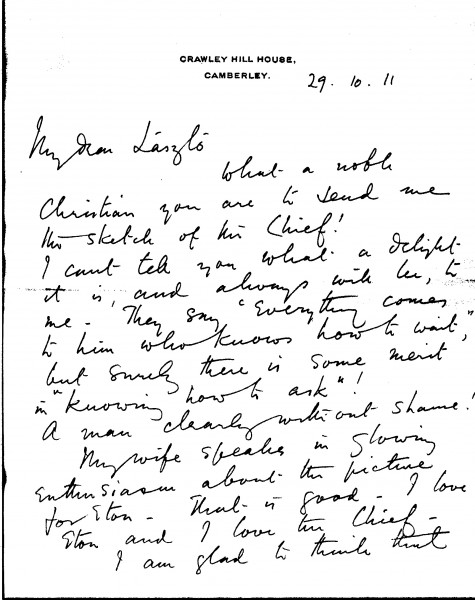 CRAWLEY HILL HOUSE,
CAMBERLEY.
29. 10. 11
My dear László
What a noble
Christian you are to send me
the sketch of the Chief!
I can't tell you what a delight
it is, and always will be, to
me - They say "Everything comes
to him who knows how to wait",
but surely there is some merit
in "knowing how to ask"!
A man clearly without shame!
My wife speaks in glowing
enthusiasm about the picture
for Eton - That is good - I love
Eton and I love the Chief -
I am glad to think that